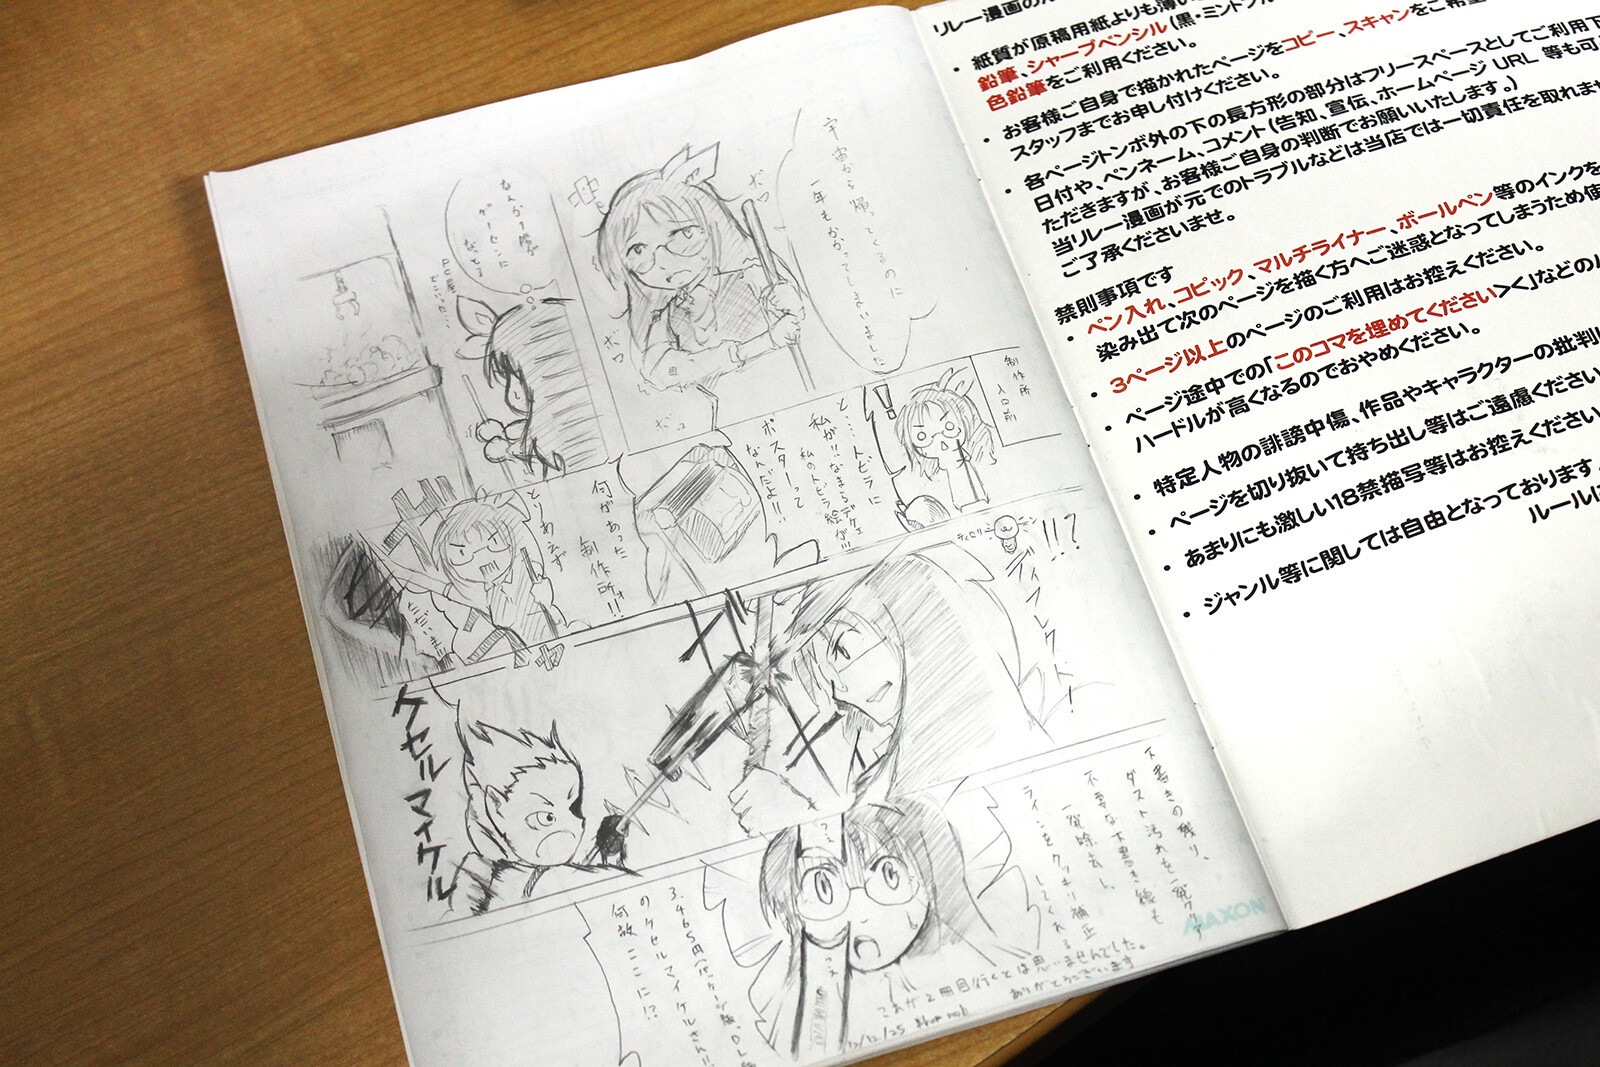 宇宙から帰ってくるのに
一年もかかってしまいました
ボロ
ボロ
なんか1階が
ゲーセンに
なってる
制作所
入口前
!!
と…トビラに
私が!!なまらデケェ
私のトビラ絵が!!!
ポスターって
なんだよ!!
とりあえず
何があった
制作所ォ!!
ただいま!!!
!!?
ディフレクト!
ケセルマイケル
下書きの残り、
ダスト汚れを一発クリア
不要な下書き線も
一発除去し、
ラインをクッキリ補正
してくれる
3,465円(パッケージ版、DL版
のケセルマイケルさん!!
何故ここに!?
これが2冊目行くとは思いませんでした。
ありがとうございます
12/12/25
MAXON
リレー漫画の
・紙質が原稿用紙よりも薄い
鉛筆、シャープペンシル(黒・ミントブル
色鉛筆をご利用ください。
・お客様ご自身で描かれたページをコピー、スキャンをご希望
スタッフまでお申し付けください。
・各ページトンボ外の下の長方形の部分はフリースペースとしてご利用下
日付や、ペンネーム、コメント(告知、宣伝、ホームページURL 等も可
ただきますが、お客様ご自身の判断でお願いいたします。)
当リレー漫画が元でのトラブルなどは当店では一切責任を取れませ
ご了承くださいませ。
禁則事項です
・ペン入れ、コピック、マルチライナー、ボールペン等のインクを
染み出て次のページを描く方へご迷惑となってしまうため使
・3ページ以上のページのご利用はお控えください。
・ページ途中での「このコマを埋めてください><」などの
ハードルが高くなるのでおやめください。
・特定人物の誹謗中傷、作品やキャラクターの批判
・ページを切り抜いて持ち出し等はご遠慮ください
・あまりにも激しい18禁描写等はお控えください
・ジャンル等に関しては自由となっております。
ルールに